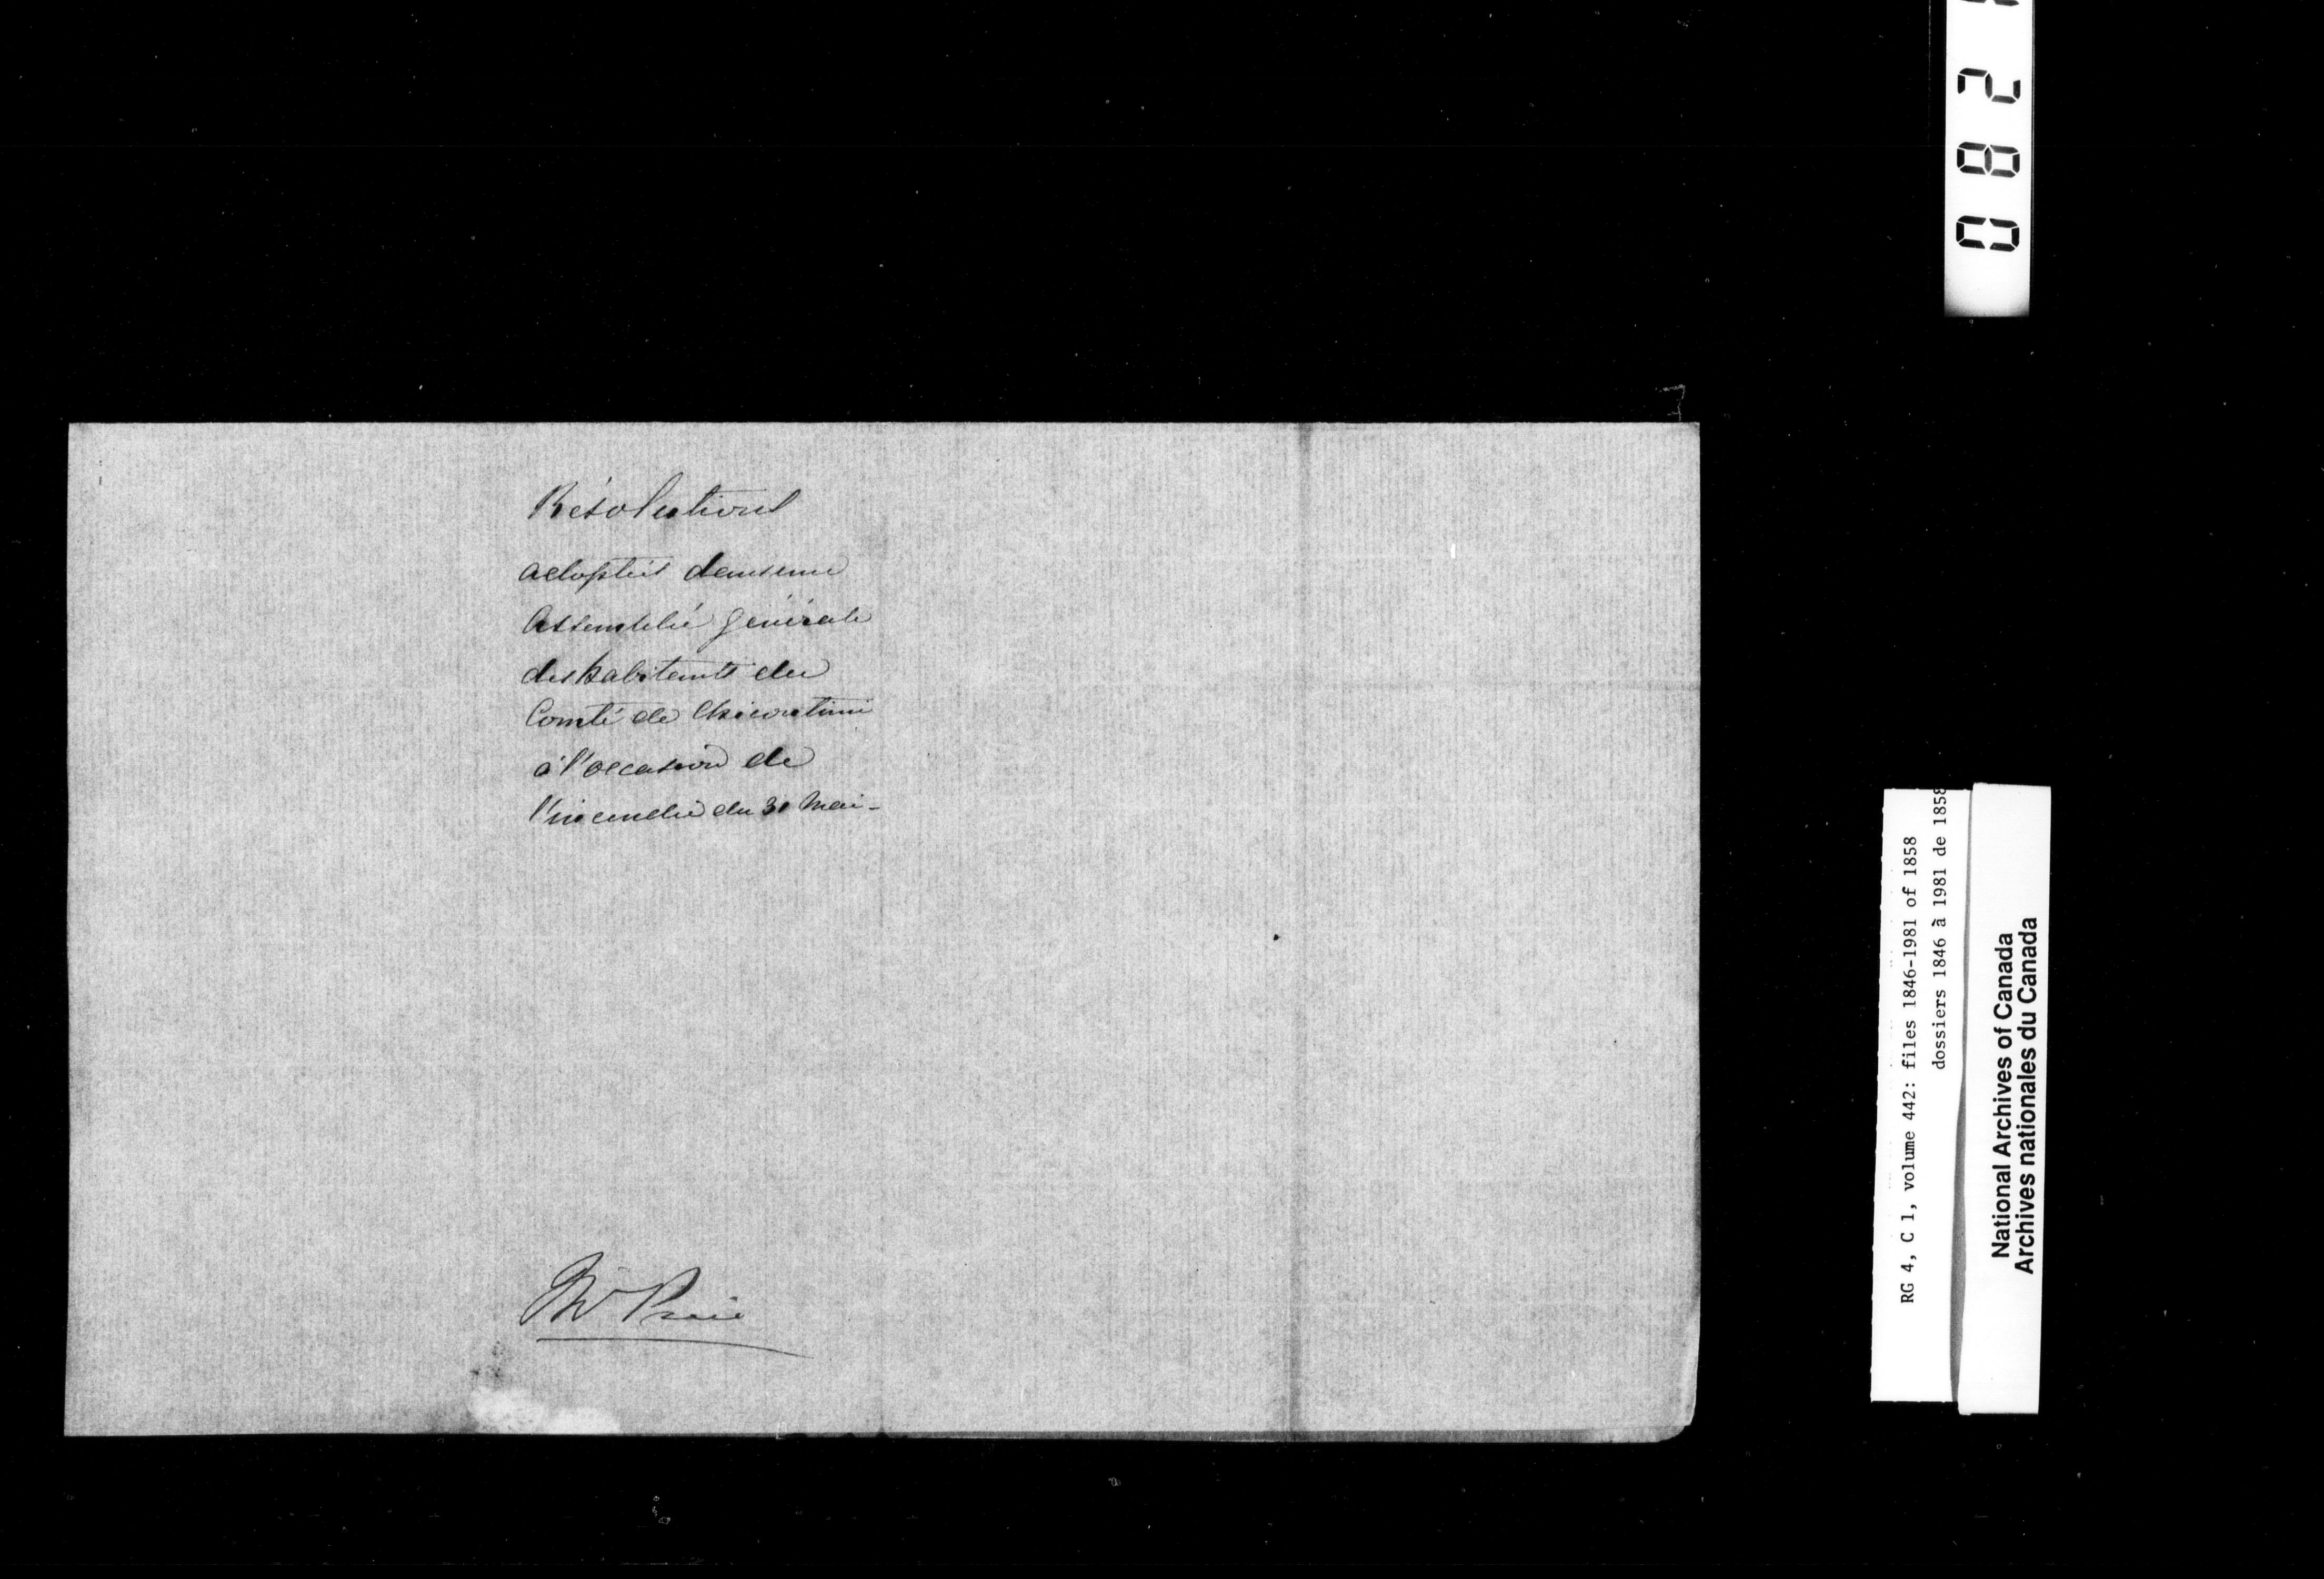 Résolutions
adoptées dans une
Assemblée générale
des habitants du
Comté de Chicoutimi
à l'occasion de
l'incendie du 30 Mai -
Mr Price
RG 4, C 1, volume 442: files 1846-1981 of 1858
dossiers 1846 à 1981 de 1858
National Archives of Canada
Archives nationales du Canada
0 8 2